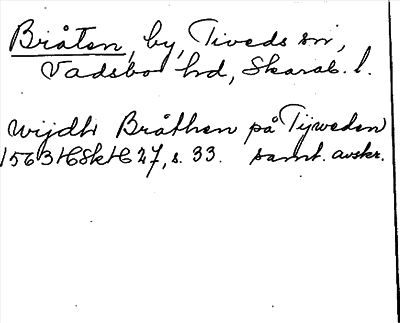 Bråten, by, Tiveds sn,
Vadsbo hd, Skarab. l.
wijdh Bråthen på Tijweden
1563 HSkH 27, s. 33. samt. avskr.